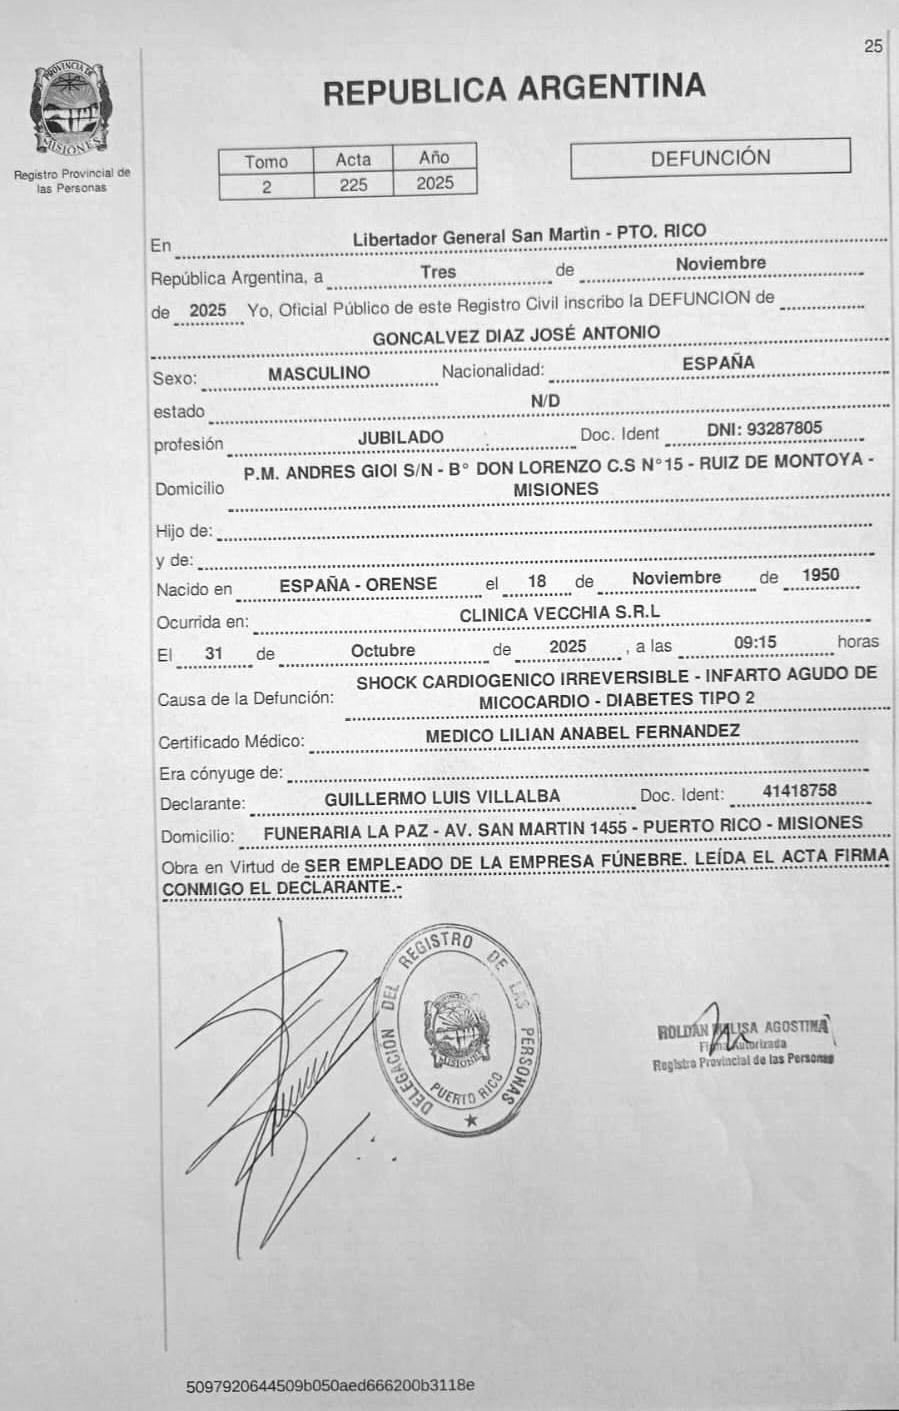 25
PROVINCIA DE
MISIONES
Registro Provincial de
las Personas
REPUBLICA ARGENTINA
Tomo Acta Año
2 225 2025
DEFUNCIÓN
En Libertador General San Martin - PTO. RICO
República Argentina, a Tres de Noviembre
de 2025 Yo, Oficial Público de este Registro Civil inscribo la DEFUNCION de
GONCALVEZ DIAZ JOSÉ ANTONIO
Sexo: MASCULINO Nacionalidad: ESPAÑA
estado N/D
profesión JUBILADO Doc. Ident DNI: 93287805
P.M. ANDRES GIOI S/N - B° DON LORENZO C.S N°15 - RUIZ DE MONTOYA -
Domicilio MISIONES
Hijo de:
y de:
Nacido en ESPAÑA - ORENSE el 18 de Noviembre de 1950
Ocurrida en: CLINICA VECCHIA S.R.L
El 31 de Octubre de 2025, a las 09:15 horas
SHOCK CARDIOGENICO IRREVERSIBLE - INFARTO AGUDO DE
Causa de la Defunción: MICOCARDIO - DIABETES TIPO 2
Certificado Médico: MEDICO LILIAN ANABEL FERNANDEZ
Era cónyuge de:
Declarante: GUILLERMO LUIS VILLALBA Doc. Ident: 41418758
Domicilio: FUNERARIA LA PAZ - AV. SAN MARTIN 1455 - PUERTO RICO - MISIONES
Obra en Virtud de SER EMPLEADO DE LA EMPRESA FÚNEBRE. LEÍDA EL ACTA FIRMA
CONMIGO EL DECLARANTE.-
DELEGACION DEL REGISTRO DE LAS PERSONAS
MISIONES
PUERTO RICO
ROLDÁN AGOSTINA
Firma Autorizada
Registro Provincial de las Personas
5097920644509b050aed666200b3118e